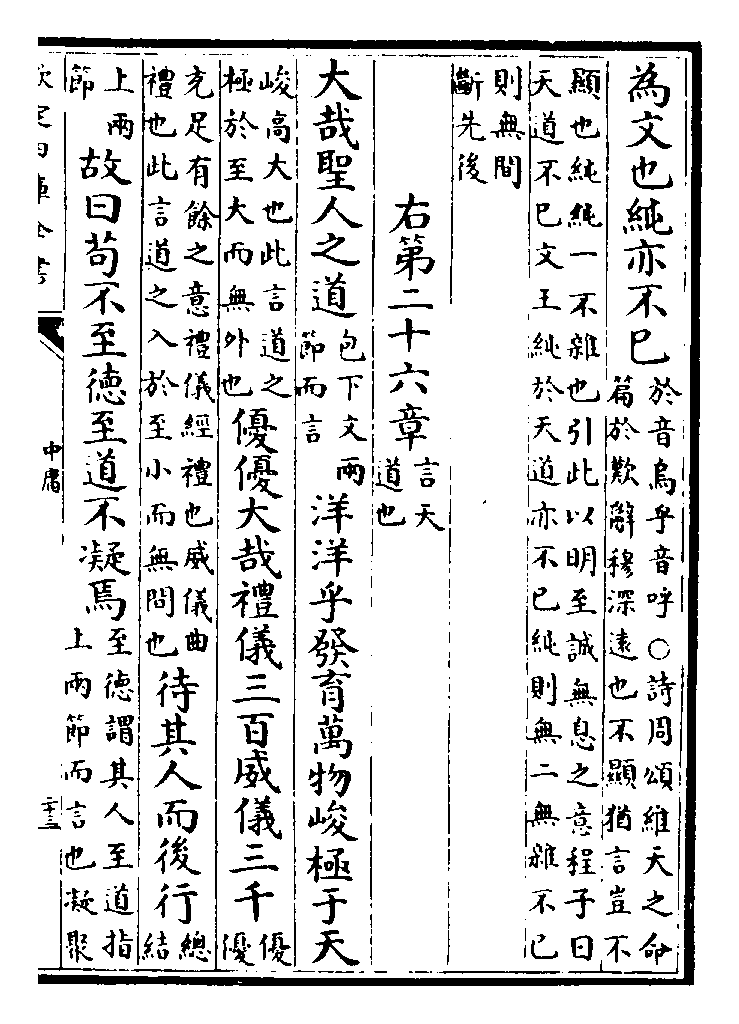 為文也純亦不已
於音烏乎音呼○詩周頌維天之命
篇於歎辭穆深遠也不顯猶言豈不
顯也純純一不雜也引此以明至誠無息之意程子曰
天道不已文王純於天道亦不已純則無二無雜不已
則無間
斷先後
右第二十六章
言天
道也
大哉聖人之道
包下文兩
節而言
洋洋乎發育萬物峻極于天
峻高大也此言道之
極於至大而無外也
優優大哉禮儀三百威儀三千
優
優
充足有餘之意禮儀經禮也威儀曲
禮也此言道之入於至小而無間也
待其人而後行
總
結
上兩
節
故曰苟不至德至道不凝焉
至德謂其人至道指
上兩節而言也凝聚
欽定四庫全書
中庸
二十三